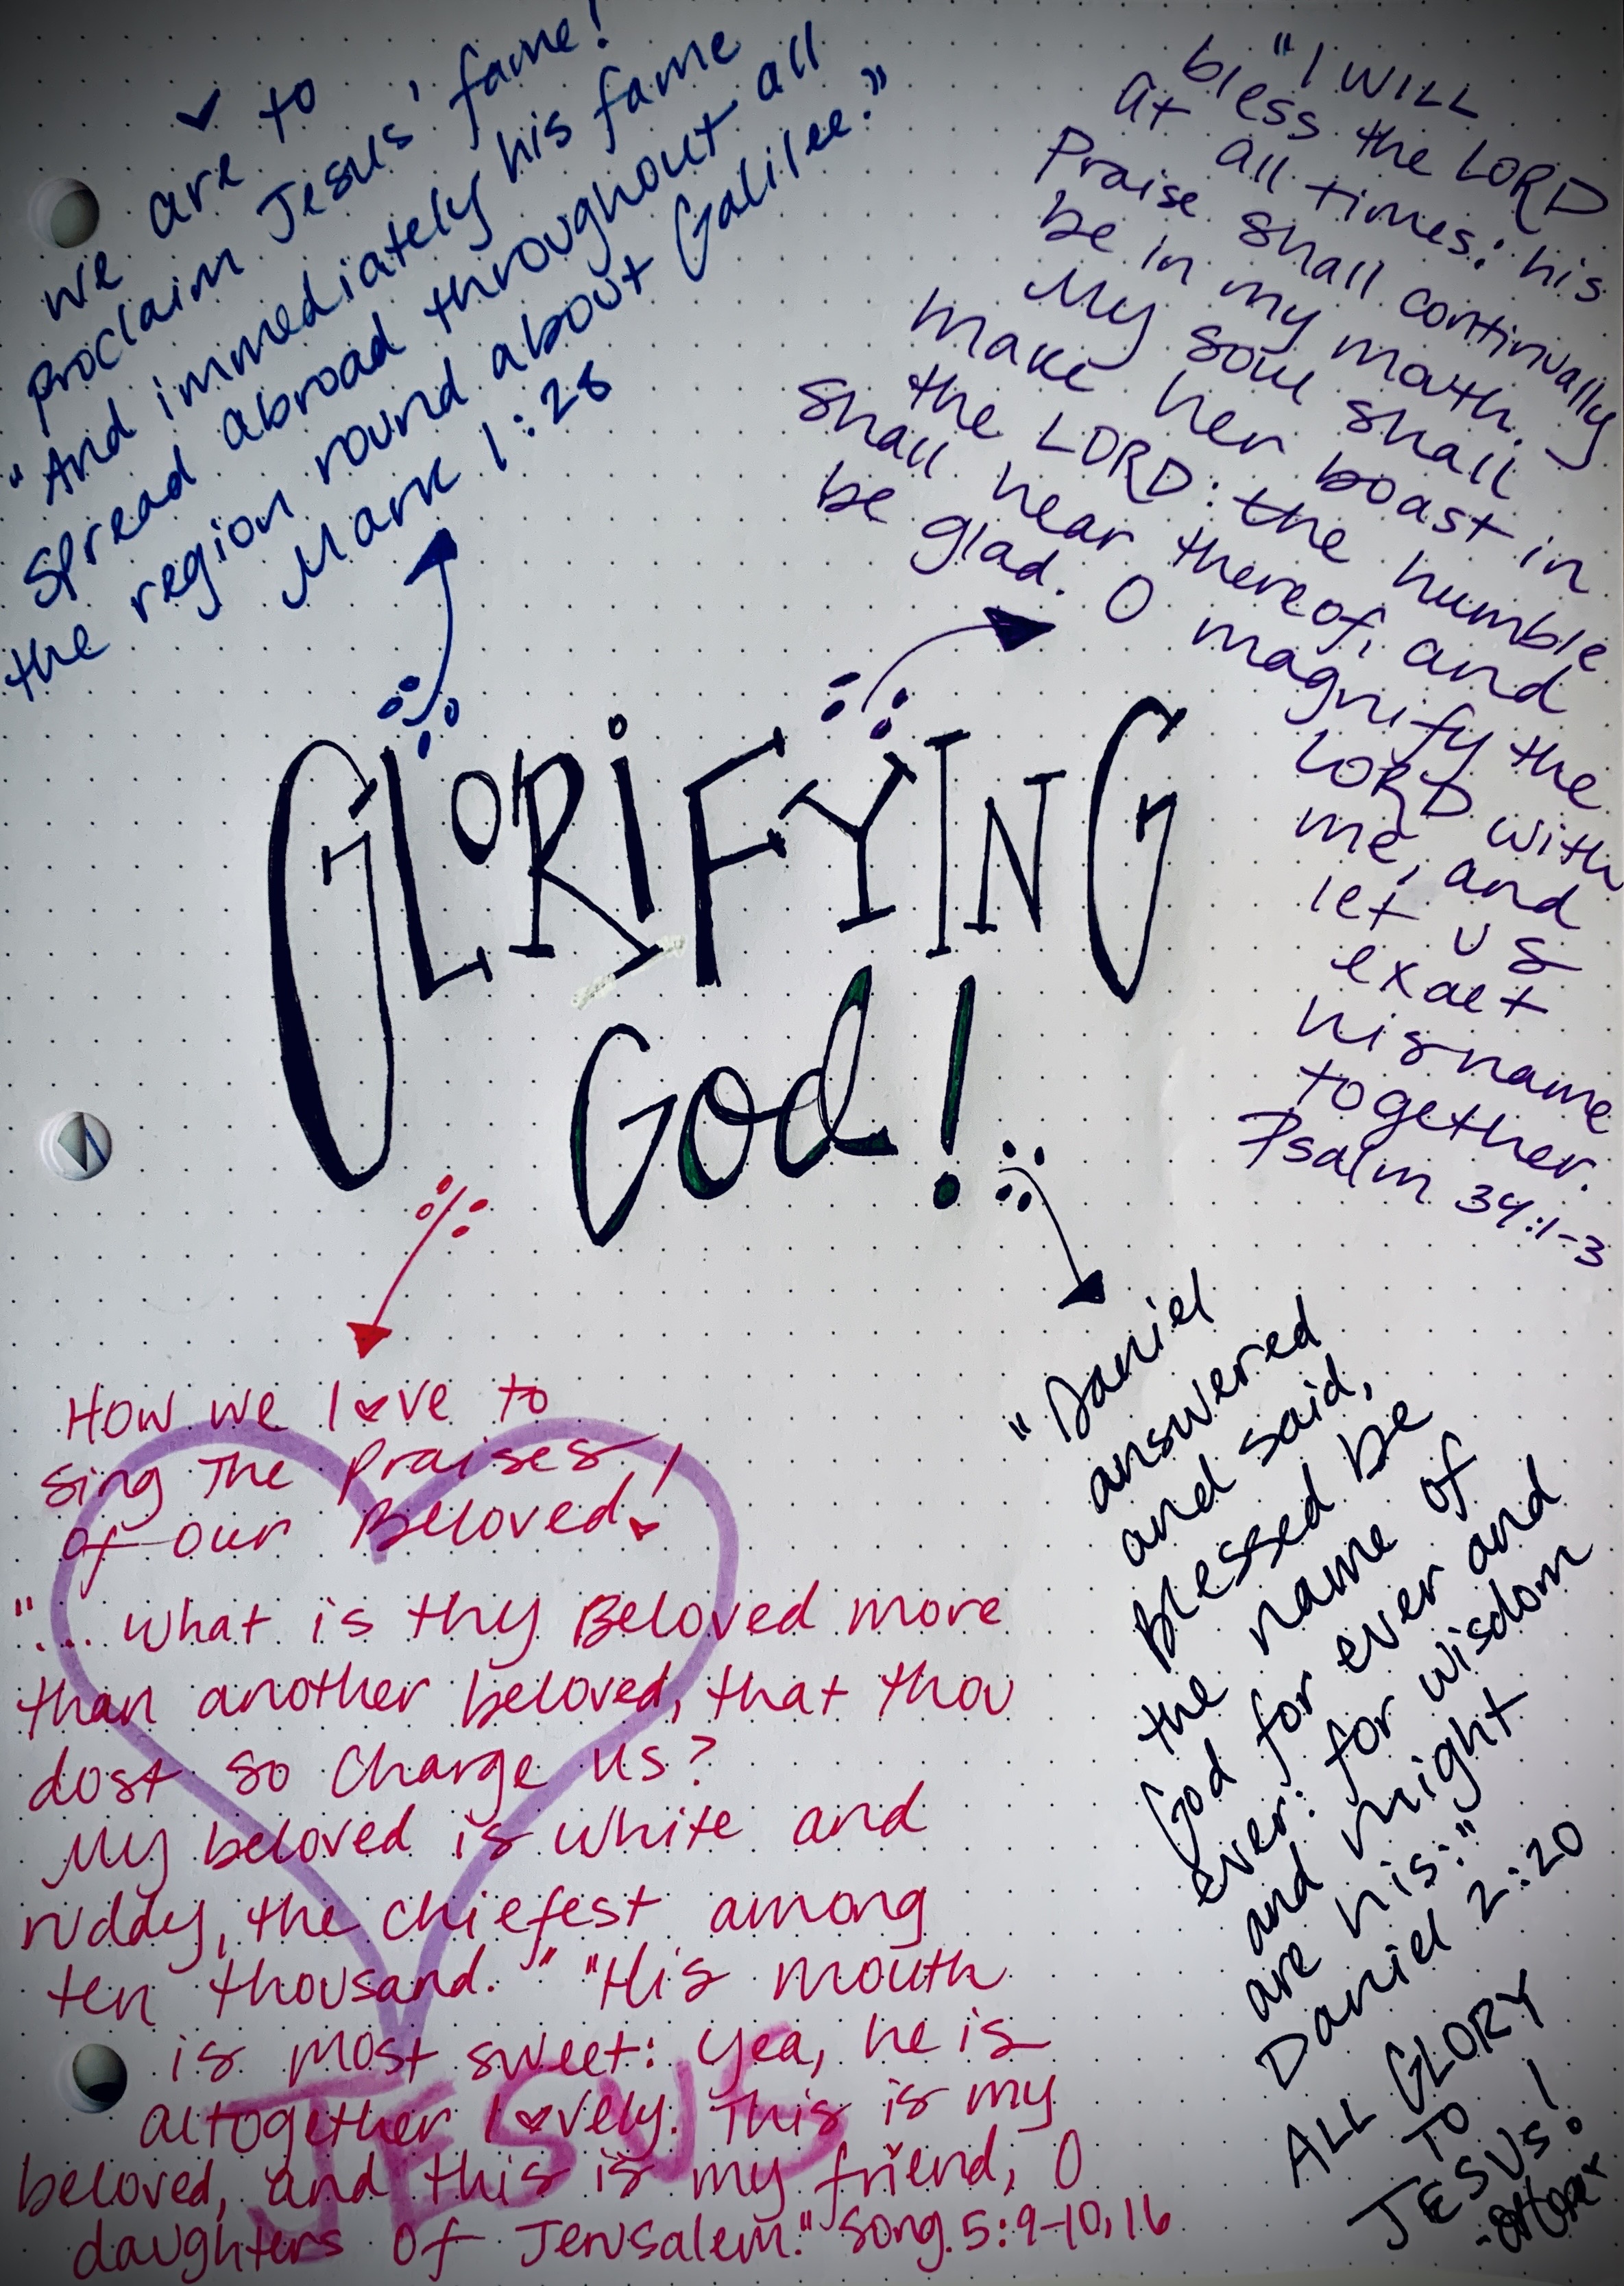 we are to
proclaim Jesus' fame!
"And immediately his fame
spread abroad throughout all
the region round about Galilee."
Mark 1:28
"I WILL
bless the LORD
at all times: his
Praise shall continually
be in my mouth.
My soul shall
make her boast in
the LORD: the humble
shall hear thereof, and
be glad. O magnify the
LORD with
me, and
let us
exalt
his name
together.
Psalm 34:1-3
GLORIFYING
God!
How we love to
sing The Praises
of our Beloved!
"... What is thy Beloved more
than another beloved, that thou
dost so charge us?
My beloved is white and
ruddy, the chiefest among
ten thousand." "His mouth
is most sweet: yea, he is
altogether lovely. This is my
beloved, and this is my friend, O
daughters of Jerusalem." Song 5:9-10,16
JESUS
"Daniel
answered
and said,
Blessed be
the name of
God for ever and
ever: for wisdom
and might
are his:"
Daniel 2:20
ALL GLORY
TO
JESUS!